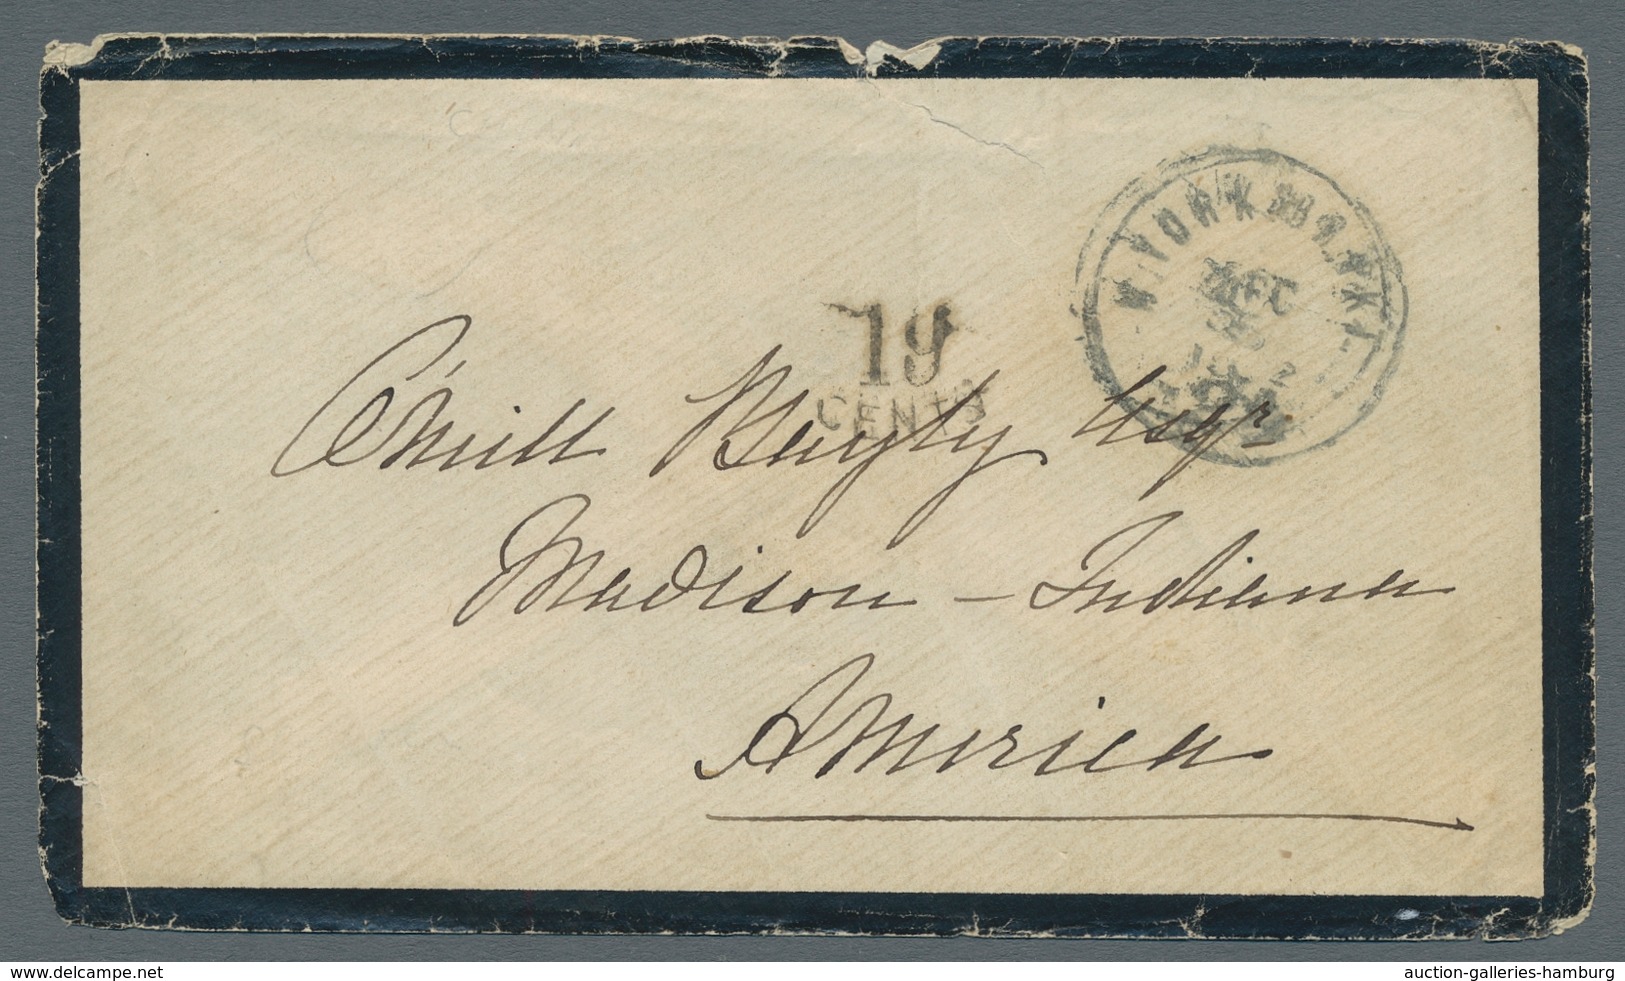 19
CENTS
N. YORK
DEC
O'Neill Bayly Esqr
Madison - Indiana
America
www.delcampe.net
auction-galleries-hamburg